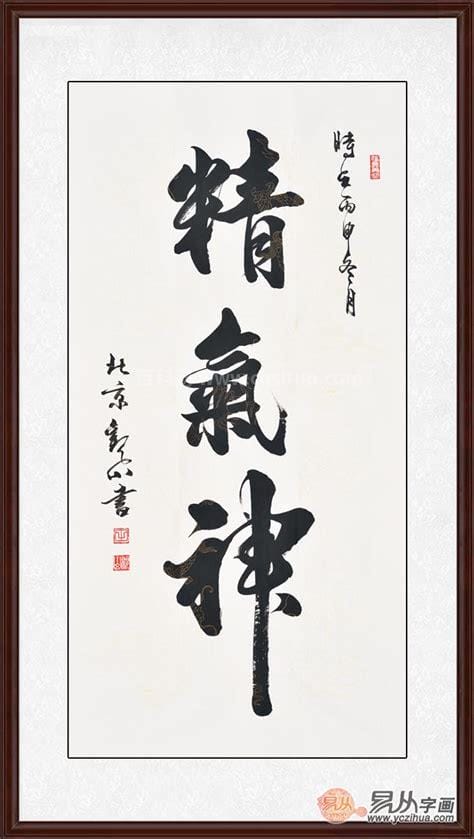 時在丙申冬月
精氣神
北京觀山書
易从
易从字画
www.yczihua.com